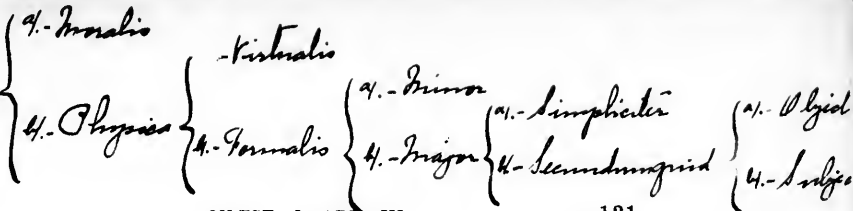 a/.- Moralis
b/.- Physica
-Virtualis
b.- Formalis
a/.- Minor
b/.- Major
a/.- Simpliciter
b- Secundumquid
a/.- Object
b/.- Subjec
131